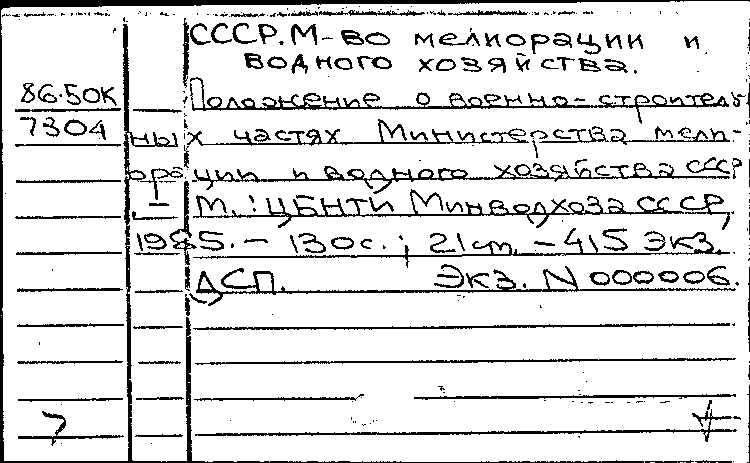 СССР. М-во мелиорации и
водного хозяйства.
86-50К
7304
Положение о военно-строитель
ных частях Министерства мели-
орации и водного хозяйства СССР
. – М.: ЦБНТИ Минводхоза СССР,
1985. – 130с.; 21см. – 415 экз.
ДСП. Экз. N 000006.